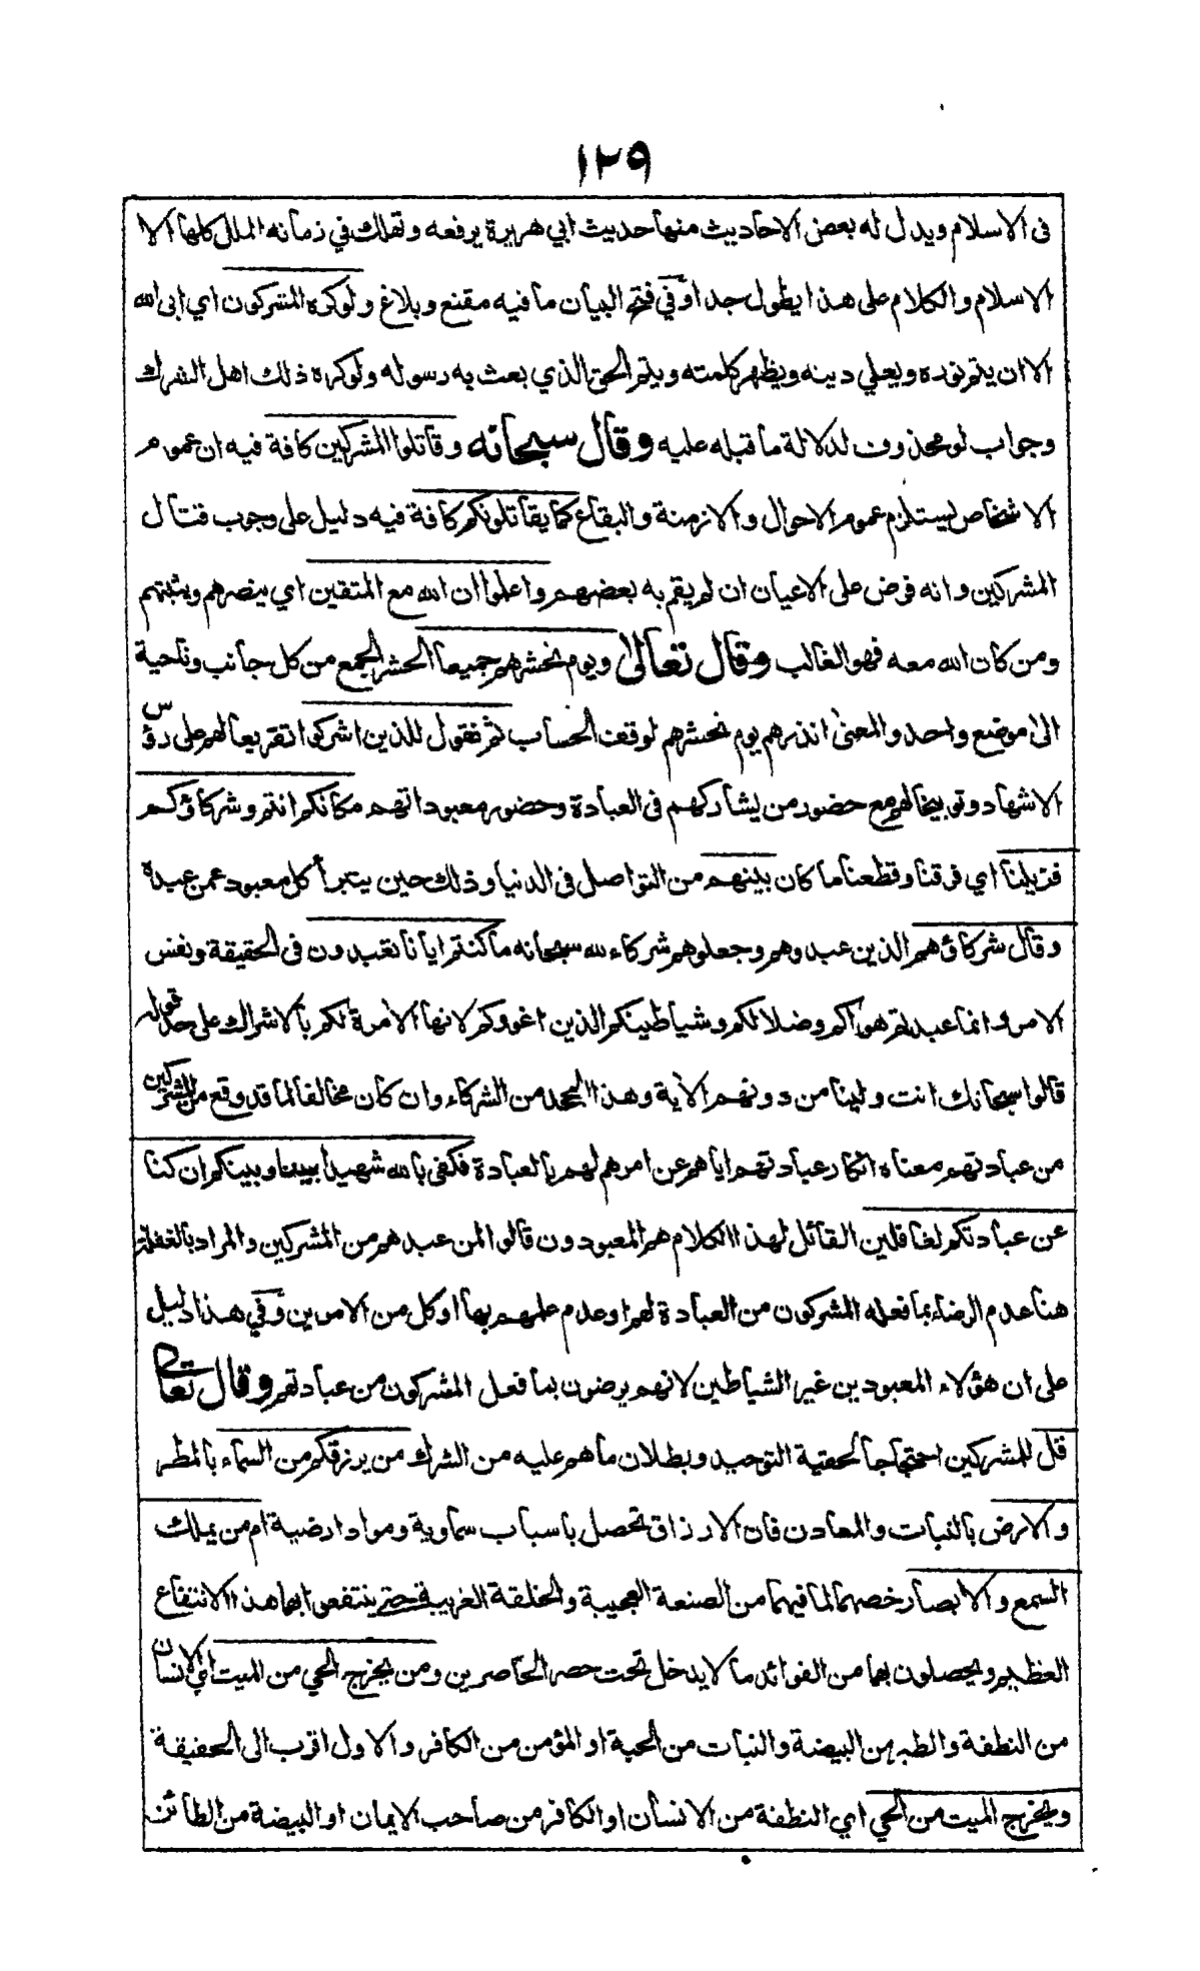 ١٢٩
فى الاسلام ويدل له بعض الاحاديث منها حديث ابي هريرة يرفعه وتهلك في زمانه الملل كلها الا
الاسلام والكلام على هذا يطول جدا وفي فتح البيان ما فيه مقنع وبلاغ ولوكره المشركون اي ابى الله
الا ان يتم نوره ويعلي دينه ويظهر كلمته ويتم الحق الذي بعث به رسوله ولوكره ذلك اهل الشرك
وجواب لو محذوف لدلالة ما قبله عليه وقال سبحانه وقاتلوا المشركين كافة فيه ان عموم
الاشخاص يستلزم عموم الاحوال والازمنة والبقاع كما يقاتلونكم كافة فيه دليل على وجوب قتال
المشركين وانه فرض على الاعيان ان لم يقم به بعضهم واعلموا ان الله مع المتقين اي ينصرهم ويثبتهم
ومن كان الله معه فهو الغالب وقال تعالىٰ ويوم نحشرهم جميعا الحشر الجمع من كل جانب وناحية
الىٰ موضع واحد والمعنىٰ انذرهم يوم نحشرهم لوقف الحساب ثم نقول للذين اشركوا تقريعا لهم على رؤس
الاشهاد وتوبيخا لهم مع حضور من يشاركهم فى العبادة وحضور معبوداتهم مكانكم انتم وشركاؤكم
فزيلنا اي فرقنا وقطعنا ما كان بينهم من التواصل فى الدنيا وذلك حين يتبرأ كل معبود عمن عبده
وقال شركاؤهم الذين عبدوهم وجعلوهم شركاء لله سبحانه ما كنتم ايانا تعبدون فى الحقيقة ونفس
الامر وانما عبدتم هواكم وضلالكم وشياطينكم الذين اغووكم لانها الآمرة لكم بالاشراك على حد قوله
قالوا سبحانك انت ولينا من دونهم الأية وهذا الجحد من الشركاء وان كان مخالفا لما قد وقع من المشركين
من عبادتهم معناه انكار عبادتهم اياهم عن امرهم لهم بالعبادة فكفى بالله شهيدا بيننا وبينكم ان كنا
عن عبادتكم لغافلين القائل لهذا الكلام هم المعبودون قالوا لمن عبدهم من المشركين والمراد بالغفلة
هنا عدم الرضاء بما فعله المشركون من العبادة لهم او عدم علمهم بها او كل من الامرين وفي هذا دليل
على ان هؤلاء المعبودين غير الشياطين لانهم يرضون بما فعل المشركون من عبادتهم وقال تعالى
قل للمشركين احتجاجا لحقية التوحيد وبطلان ما هم عليه من الشرك من يرزقكم من السماء بالمطر
والارض بالنبات والمعادن فان الارزاق تحصل باسباب سماوية ومواد ارضية ام من يملك
السمع والابصار خصهما لما فيهما من الصنعة العجيبة والخلقة الغريبة حتى ينتفعوا بهما هذا الانتفاع
العظيم ويحصلون بهما من الفوائد ما لا يدخل تحت حصر الحاصرين ومن يخرج الحي من الميت اي الانسان
من النطفة والطير من البيضة والنبات من الحبة او المؤمن من الكافر والاول اقرب الى الحقيقة
ويخرج الميت من الحي اي النطفة من الانسان او الكافر من صاحب الايمان او البيضة من الطائر